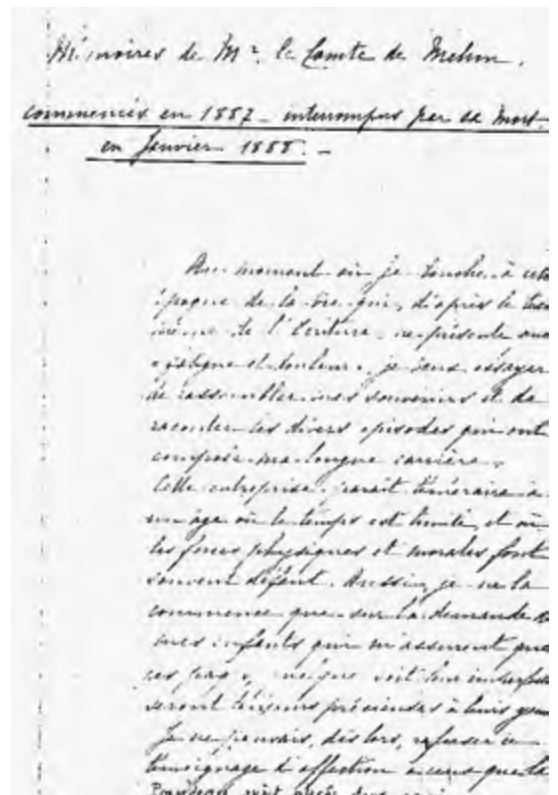 Mémoires de Mr. le Comte de Melun.
commencés en 1887 - interrompus par sa mort
en Janvier 1888. -
Au moment où je touche à cette
époque de la vie qui, d'après le
même de l'Ecriture, ne présente que
fatigue et douleur, je veux essayer
de rassembler mes souvenirs et de
raconter les divers épisodes qui ont
composé ma longue carrière.
Cette entreprise paraît téméraire à
un âge où le temps est limité, et où
les forces physiques et morales font
souvent défaut. Aussi, je ne la
commence que sur la demande de
mes enfants qui m'assurent que
ces pages, quelque soit leur
seront toujours précieuses à leurs yeux
Je ne pouvais, dès lors, refuser ce
témoignage d'affection à ceux que la